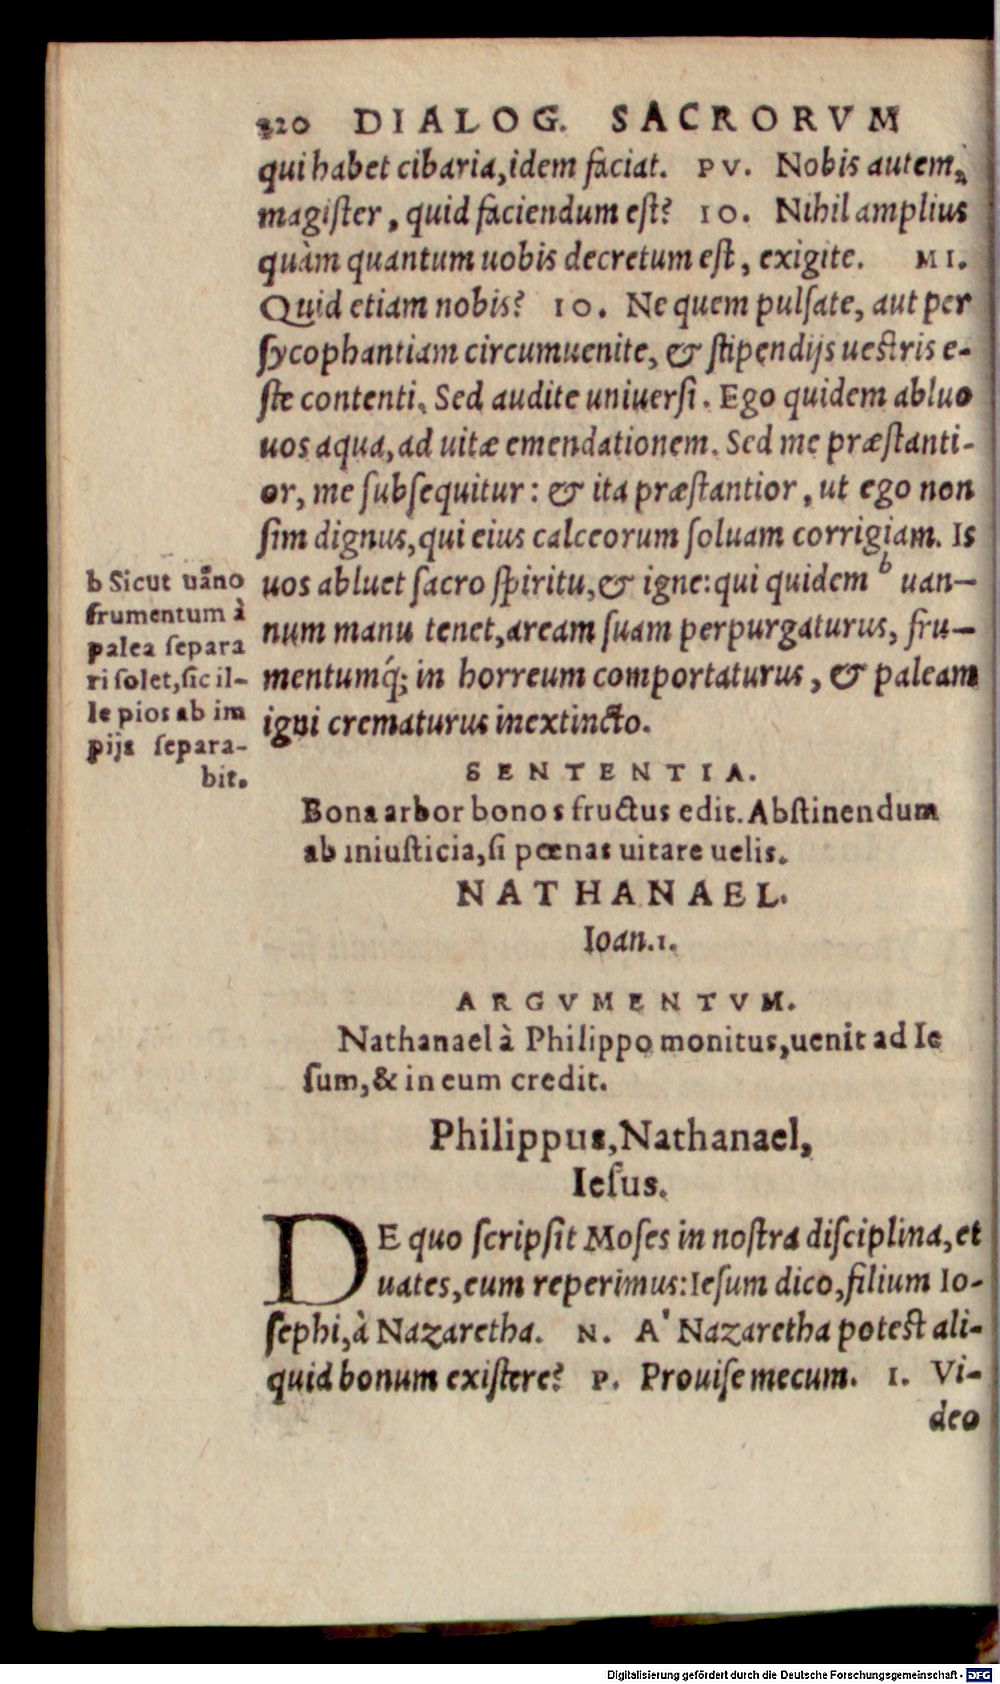 320 DIALOG. SACRORVM
qui habet cibaria, idem faciat. PV. Nobis autem,
magiſter, quid faciendum eſt? IO. Nihil amplius
quàm quantum uobis decretum eſt, exigite. MI.
Quid etiam nobis? IO. Ne quem pulſate, aut per
ſycophantiam circumuenite, & ſtipendijs ueſtris e-
ſte contenti. Sed audite uniuerſi. Ego quidem abluo
uos aqua, ad uitæ emendationem. Sed me præſtanti-
or, me ſubſequitur: & ita præſtantior, ut ego non
ſim dignus, qui eius calceorum ſoluam corrigiam. Is
uos abluet ſacro ſpiritu, & igne: qui quidem b uan-
num manu tenet, aream ſuam perpurgaturus, fru-
mentumq́; in horreum comportaturus, & paleam
igni crematurus inextincto.
b Sicut uāno
frumentum à
palea ſepara
ri ſolet, ſic il-
le pios ab im
pijs ſepara-
bit.
SENTENTIA.
Bona arbor bonos fructus edit. Abſtinendum
ab iniuſticia, ſi pœnas uitare uelis.
NATHANAEL.
Ioan.1.
ARGVMENTVM.
Nathanael à Philippo monitus, uenit ad Ie
ſum, & in eum credit.
Philippus, Nathanael,
Ieſus.
DE quo ſcripſit Moſes in noſtra diſciplina, et
uates, eum reperimus: Ieſum dico, filium Io-
ſephi, à Nazaretha. N. A' Nazaretha poteſt ali-
quid bonum exiſtere? P. Prouiſe mecum. I. Vi-
deo
Digitalisierung gefördert durch die Deutsche Forschungsgemeinschaft - DFG